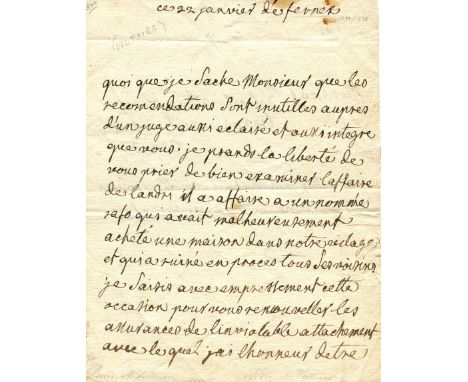 ce 22 janvier de ferney
(VOLTAIRE)
quoi que je sache Monsieur que les
recomendations sont inutilles aupres
d'un juge aussi eclairé et aussi integre
que vous. je prends la liberté de
vous prier de bien examiner laffaire
de landri il a affaire a un nommé
rafo qui avait malheureusement
acheté une maison dans notre
et qui a ruiné en proces tous ses voisins
je saisis avec empressement cette
occasion pour vous renouveller les
assurances de linviolable attachement
avec le quel jai lhonneur detre